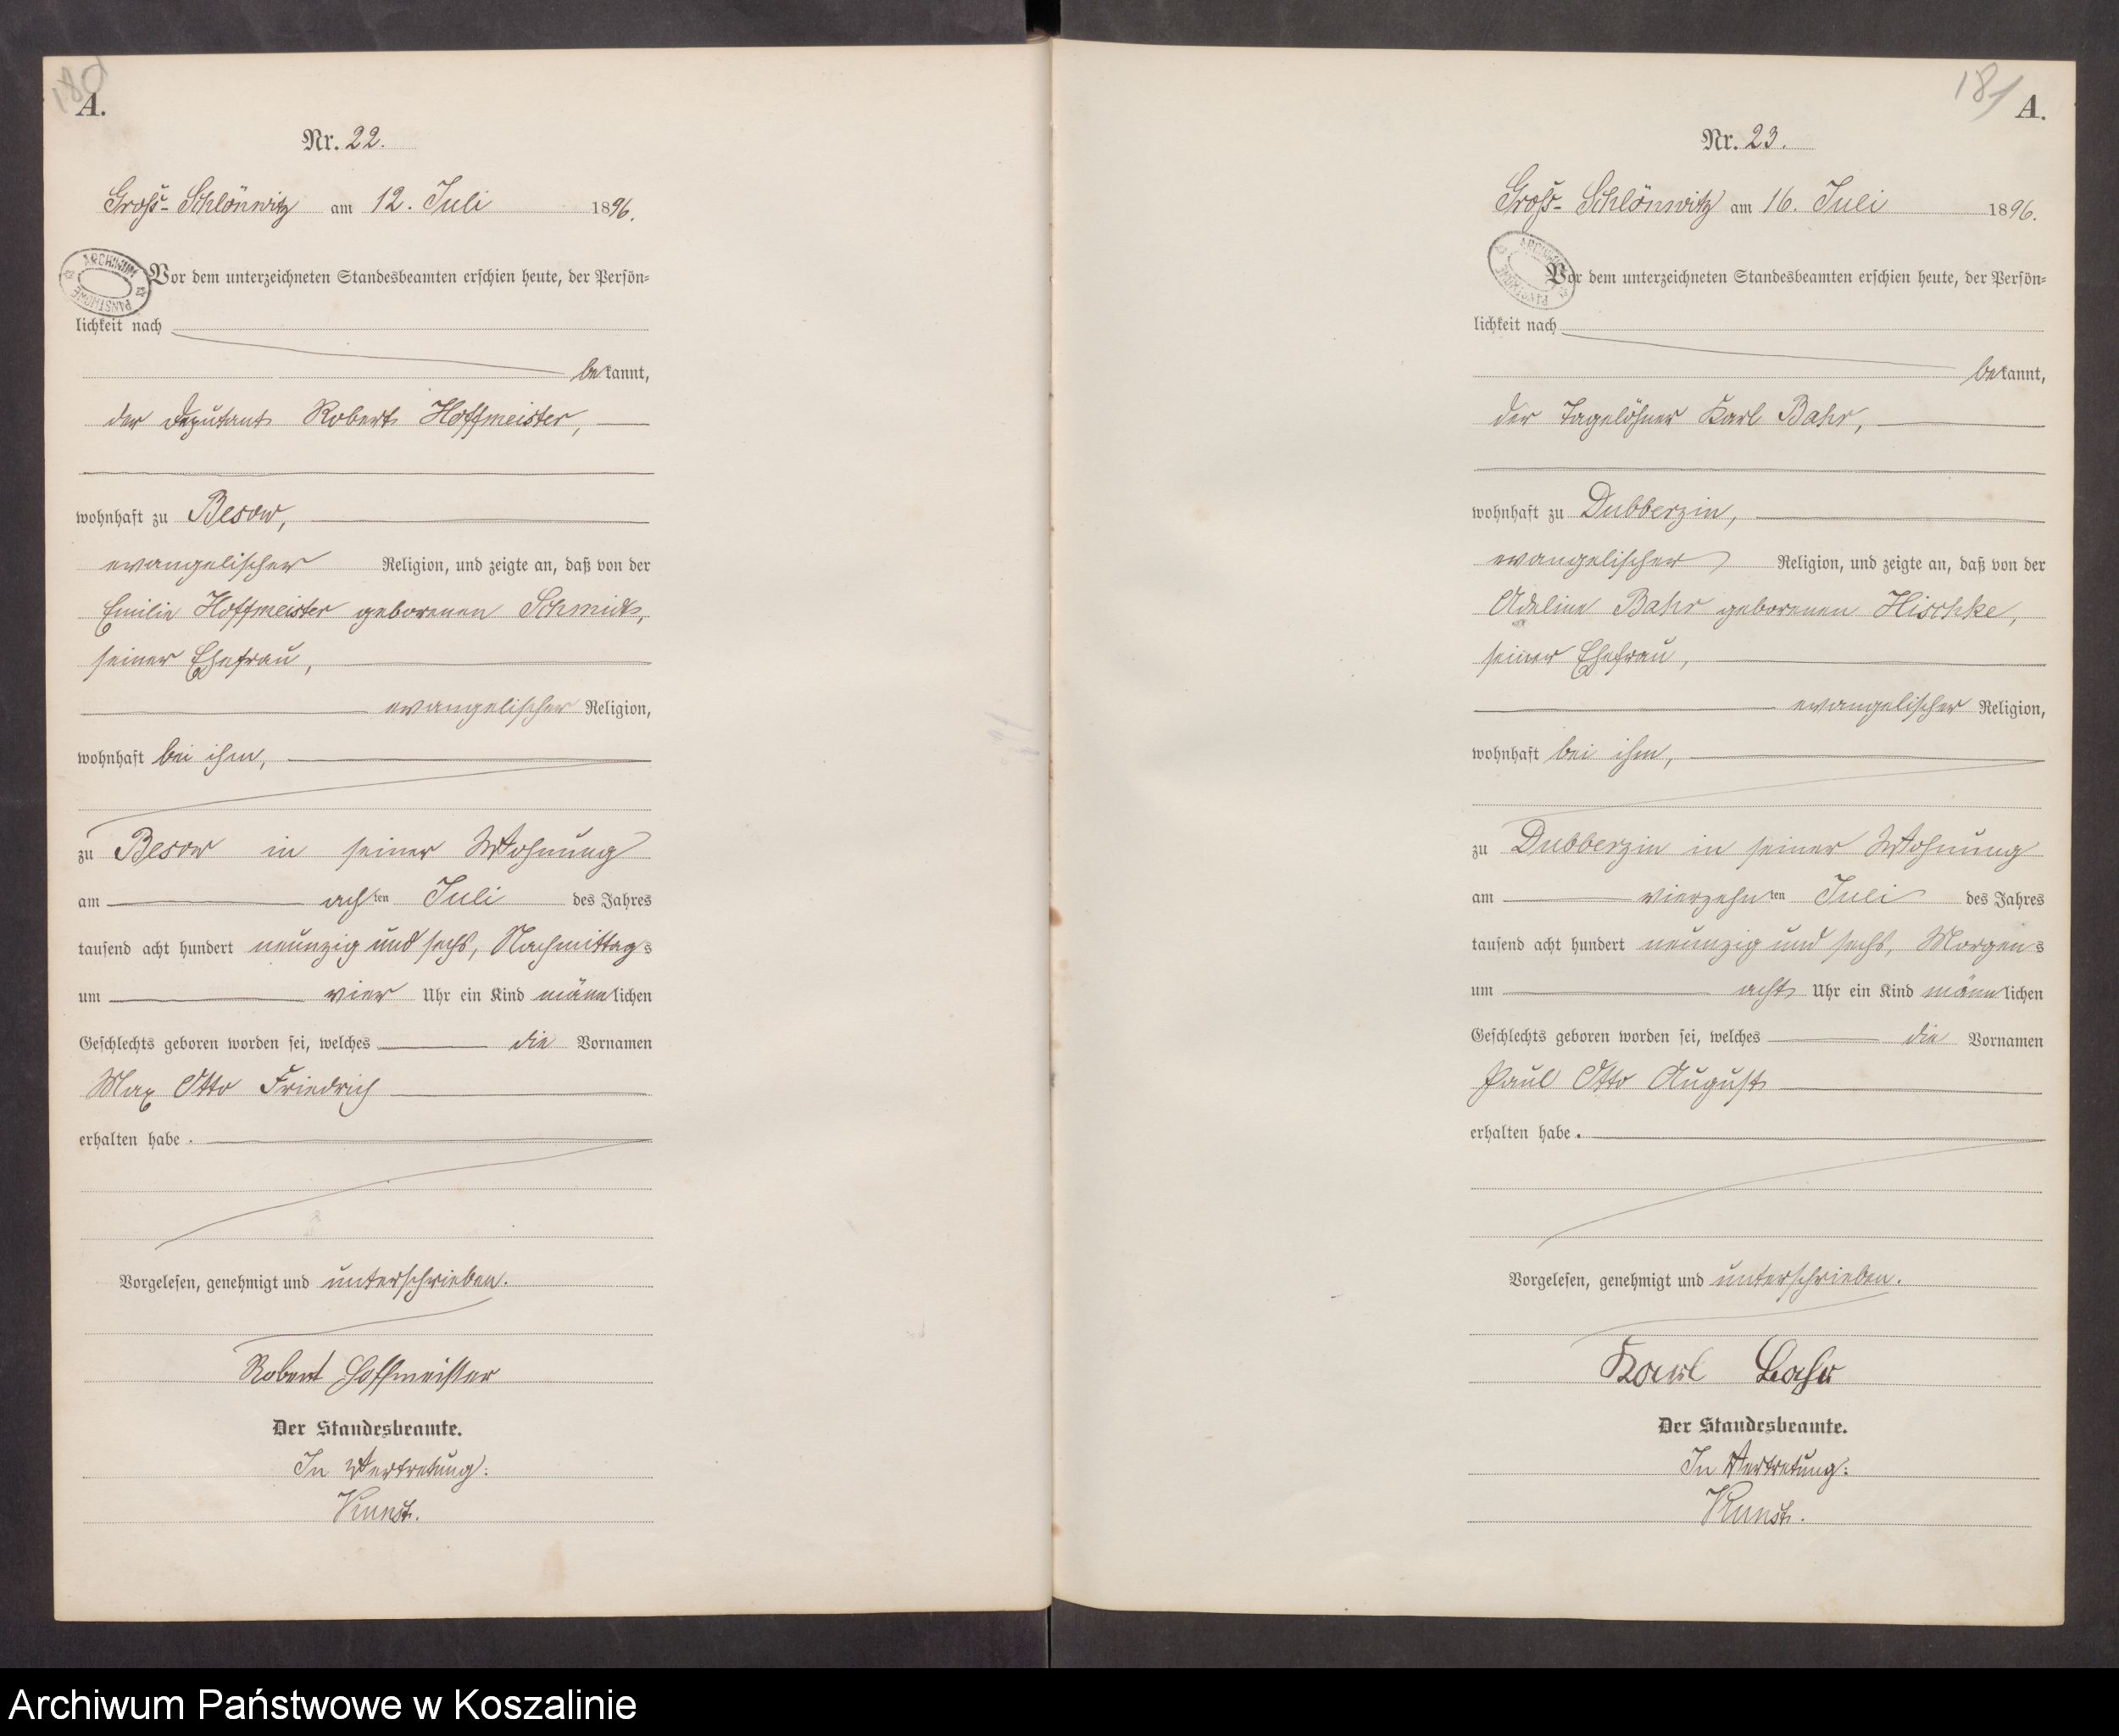 180
A.
Nr. 22.
Groß-Schlönwitz am 12. Juli 1896.
ARCHIWUM PAŃSTWOWE
Vor dem unterzeichneten Standesbeamten erschien heute, der Persön-
lichkeit nach
bekannt,
der Deputant Robert Hoffmeister,
wohnhaft zu Besow,
evangelischer Religion, und zeigte an, daß von der
Emilie Hoffmeister geborenen Schmidt,
seiner Ehefrau,
evangelischer Religion,
wohnhaft bei ihm,
zu Besow in seiner Wohnung
am achten Juli des Jahres
tausend acht hundert neunzig und sechs, Nachmittags
um vier Uhr ein Kind männlichen
Geschlechts geboren worden sei, welches die Vornamen
Max Otto Friedrich
erhalten habe.
Vorgelesen, genehmigt und unterschrieben.
Robert Hoffmeister
Der Standesbeamte.
In Vertretung:
Kunst.
181
A.
Nr. 23.
Groß-Schlönwitz am 16. Juli 1896.
ARCHIWUM PAŃSTWOWE
Vor dem unterzeichneten Standesbeamten erschien heute, der Persön-
lichkeit nach
bekannt,
der Tagelöhner Karl Bahr,
wohnhaft zu Dubberzin,
evangelischer Religion, und zeigte an, daß von der
Adeline Bahr geborenen Hischke,
seiner Ehefrau,
evangelischer Religion,
wohnhaft bei ihm,
zu Dubberzin in seiner Wohnung
am vierzehnten Juli des Jahres
tausend acht hundert neunzig und sechs, Morgens
um acht Uhr ein Kind männlichen
Geschlechts geboren worden sei, welches die Vornamen
Paul Otto August
erhalten habe.
Vorgelesen, genehmigt und unterschrieben.
Karl Bahr
Der Standesbeamte.
In Vertretung:
Kunst.
Archiwum Państwowe w Koszalinie